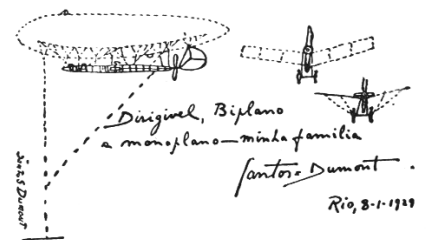 Dirigivel, Biplano
e monoplano—minha familia
Santos=Dumont.
Rio, 8-1-1929
Santos Dumont